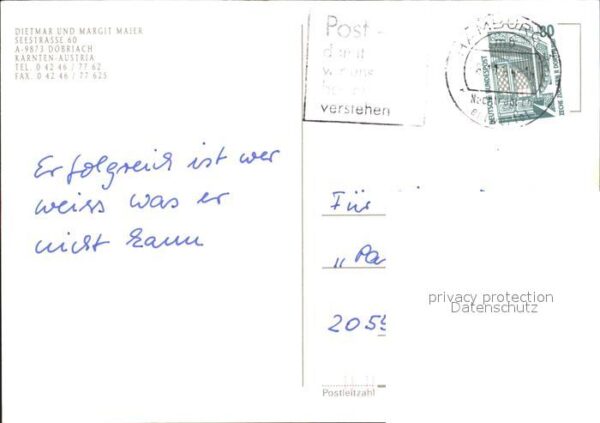 DIETMAR UND MARGIT MAIER
SEESTRASSE 60
A-9873 DÖBRIACH
KÄRNTEN-AUSTRIA
TEL. 0 42 46 / 77 62
FAX. 0 42 46 / 77 625
Post -
damit
wir uns
verstehen
HAMBURG
80
DEUTSCHE BUNDESPOST
Erfolgreich ist wer
weiss was er
nicht kann
Für
"Pa
2055
privacy protection
Datenschutz
Postleitzahl